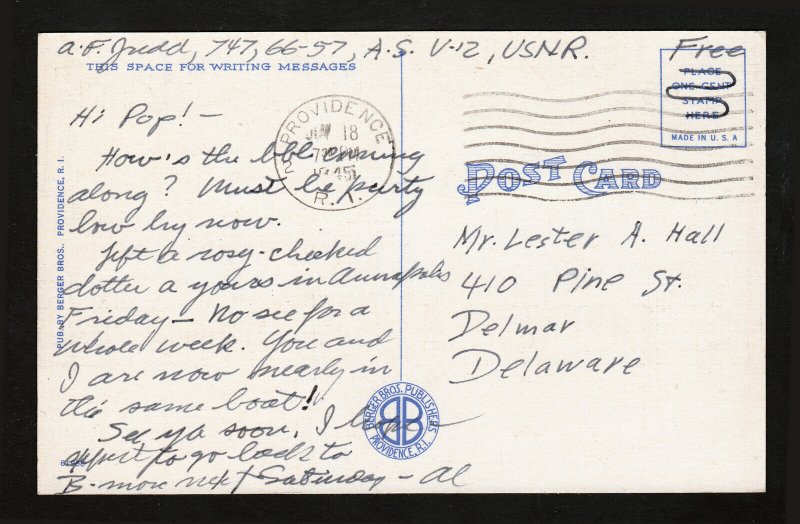 A. F. Judd, 747, 66-57, A.S. V-12, USNR.
Free
THIS SPACE FOR WRITING MESSAGES
PLACE
ONE CENT
STAMP
HERE
MADE IN U. S. A
PROVIDENCE
JUN 18
7 30 PM
1945
R. I.
POST CARD
Hi Pop! -
How's the bbl. coming
along? Must be purty
low by now.
Left a rosy-cheeked
dotter a yours in Annapolis
Friday - No see for a
whole week. You and
I are now nearly in
the same boat!
See ya soon, I hope
expect to go back to
B-more next Saturday - Al
Mr. Lester A. Hall
410 Pine St.
Delmar
Delaware
PUB. BY BERGER BROS. PROVIDENCE, R. I.
BERGER BROS. PUBLISHERS
BB
PROVIDENCE, R.I.